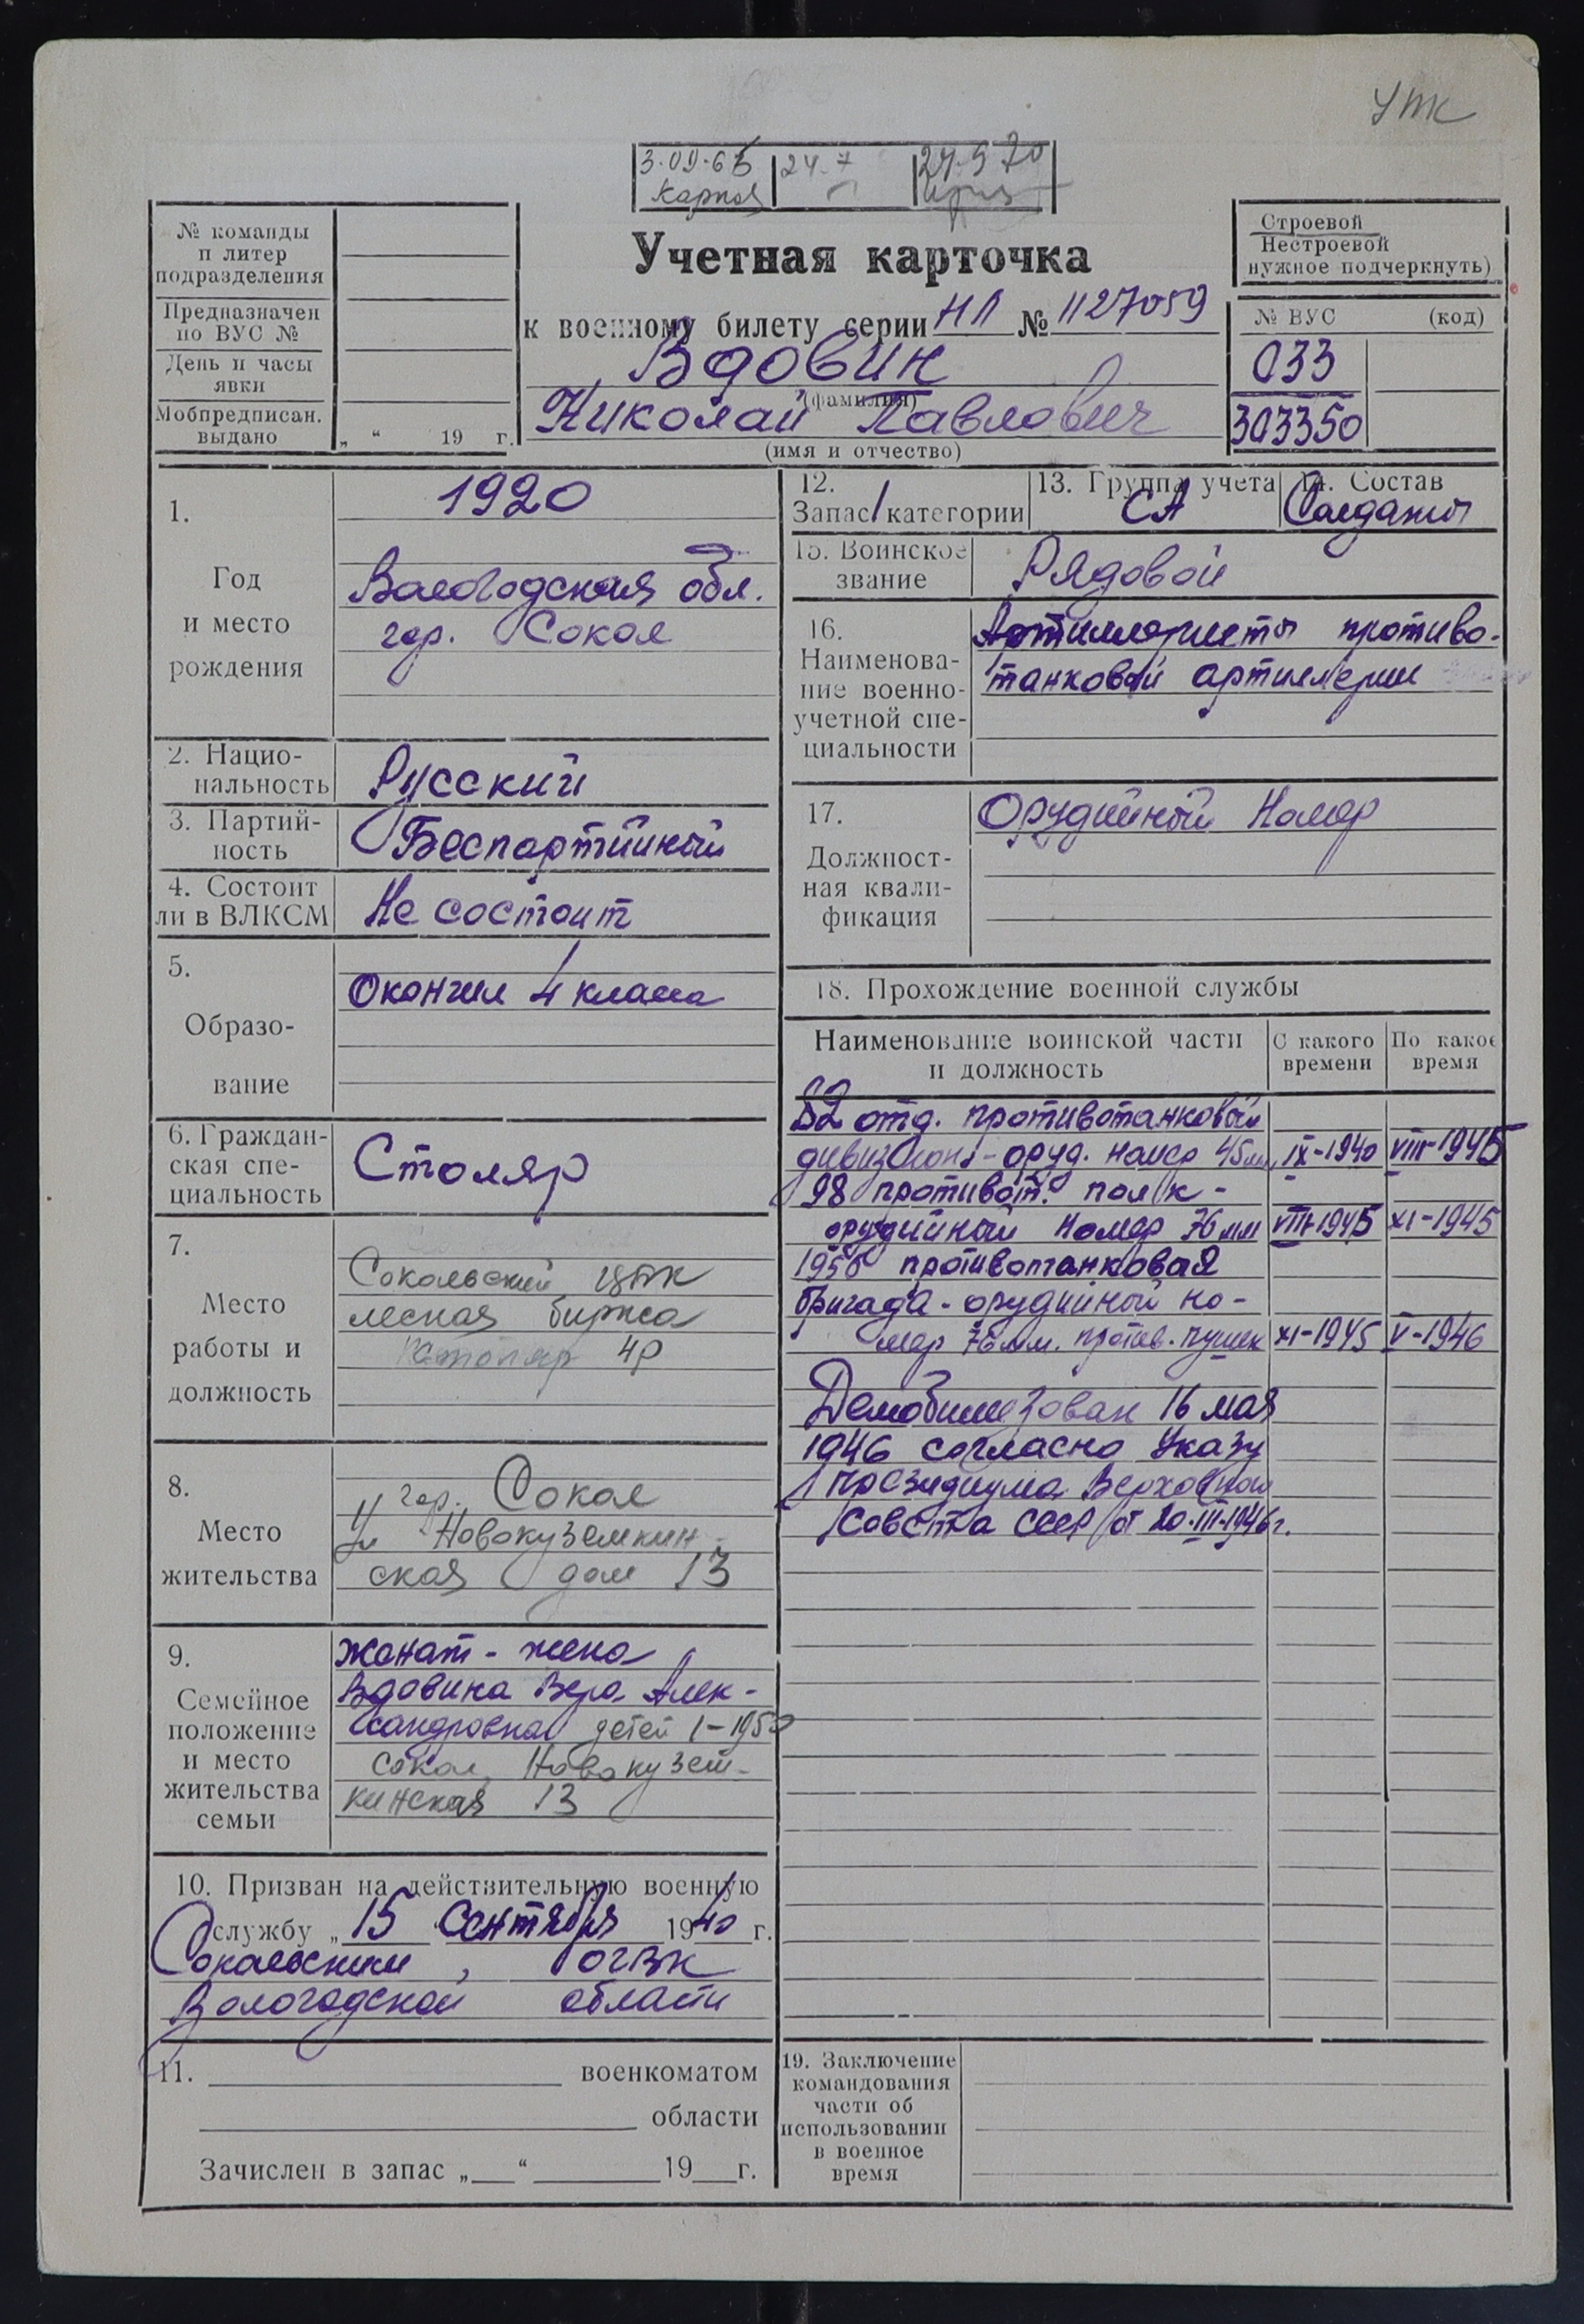 УПК
3.09.65 24.7 24.5 70
№ команды
п литер
подразделения
Предназначен
по ВУС №
День и часы
явки
Мобпредписан.
выдано
„ “ 19 г.
Учетная карточка
к военному билету серии НЛ № 1127059
Вдовин
(фамилия)
Николай Павлович
(имя и отчество)
Строевой
Нестроевой
нужное подчеркнуть)
№ ВУС (код)
033
303350
1.
Год
и место
рождения
1920
Вологодская обл.
гор. Сокол
2. Нацио-
нальность
Русский
3. Партий-
ность
Беспартийный
4. Состоит
ли в ВЛКСМ
Не состоит
5.
Образо-
вание
Окончил 4 класса
6. Граждан-
ская спе-
циальность
Столяр
7.
Место
работы и
должность
Сокольский ЦБК
лесная биржа
столяр 4р
8.
Место
жительства
гор. Сокол
ул Новокуземкин
ская дом 13
9.
Семейное
положение
и место
жительства
семьи
Женат - жена
Вдовина Вера Алек-
сандровна детей 1-1950
Сокол, Новокузем-
кинская 13
10. Призван на действительную военную
службу „ 15 “ Сентября 1940 г.
Сокольским ОГВК
Вологодской области
11. военкоматом
области
Зачислен в запас „ “ 19 г.
12.
Запас 1 категории
13. Группа учета
СА
14. Состав
Солдаты
15. Воинское
звание
Рядовой
16.
Наименова-
ние военно-
учетной спе-
циальности
Артиллеристы противо-
танковой артиллерии
17.
Должност-
ная квали-
фикация
Орудийный Номер
18. Прохождение военной службы
Наименование воинской части
и должность
С какого
времени
По какое
время
52 отд. противотанковый
дивизион - оруд. номер 45мм IX-1940 VIII-1945
98 противот. полк -
орудийный номер 76 мм VIII-1945 XI-1945
1956 противотанковая
бригада - орудийный но-
мер 76мм. против. пушек XI-1945 V-1946
Демобилизован 16 мая
1946 согласно Указу
Президиума Верховного
Совета СССР от 20.III-1946г.
19. Заключение
командования
части об
использовании
в военное
время